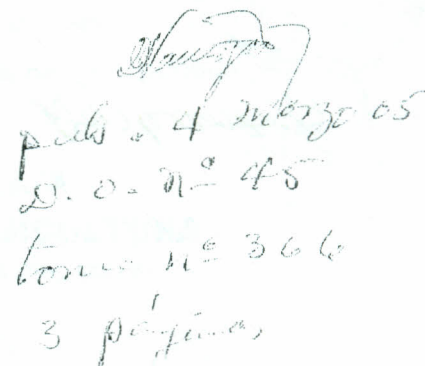 pub. 4 marzo 05
D.O. Nº 45
tomo Nº 366
3 páginas